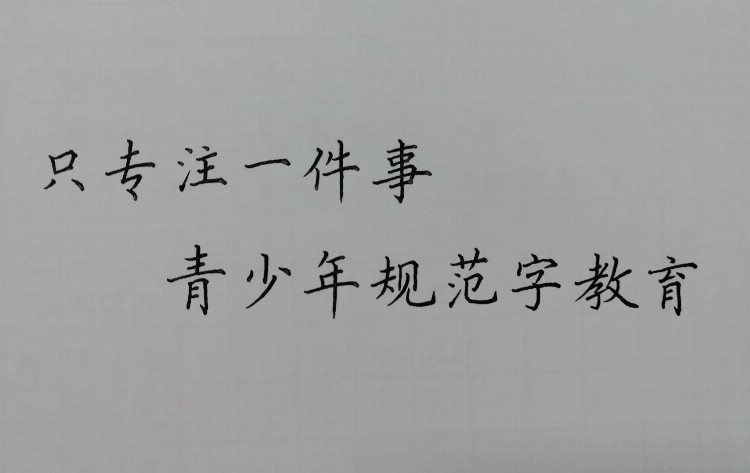 只专注一件事
青少年规范字教育